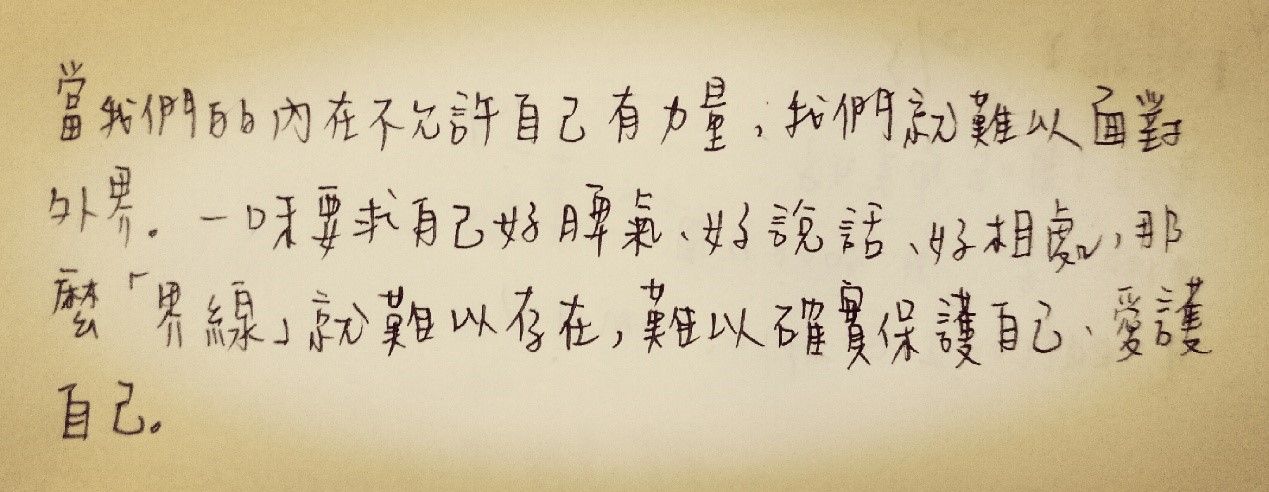 當我們的內在不允許自己有力量，我們就難以面對
外界。一味要求自己好脾氣、好說話、好相處，那
麼「界線」就難以存在，難以確實保護自己、愛護
自己。